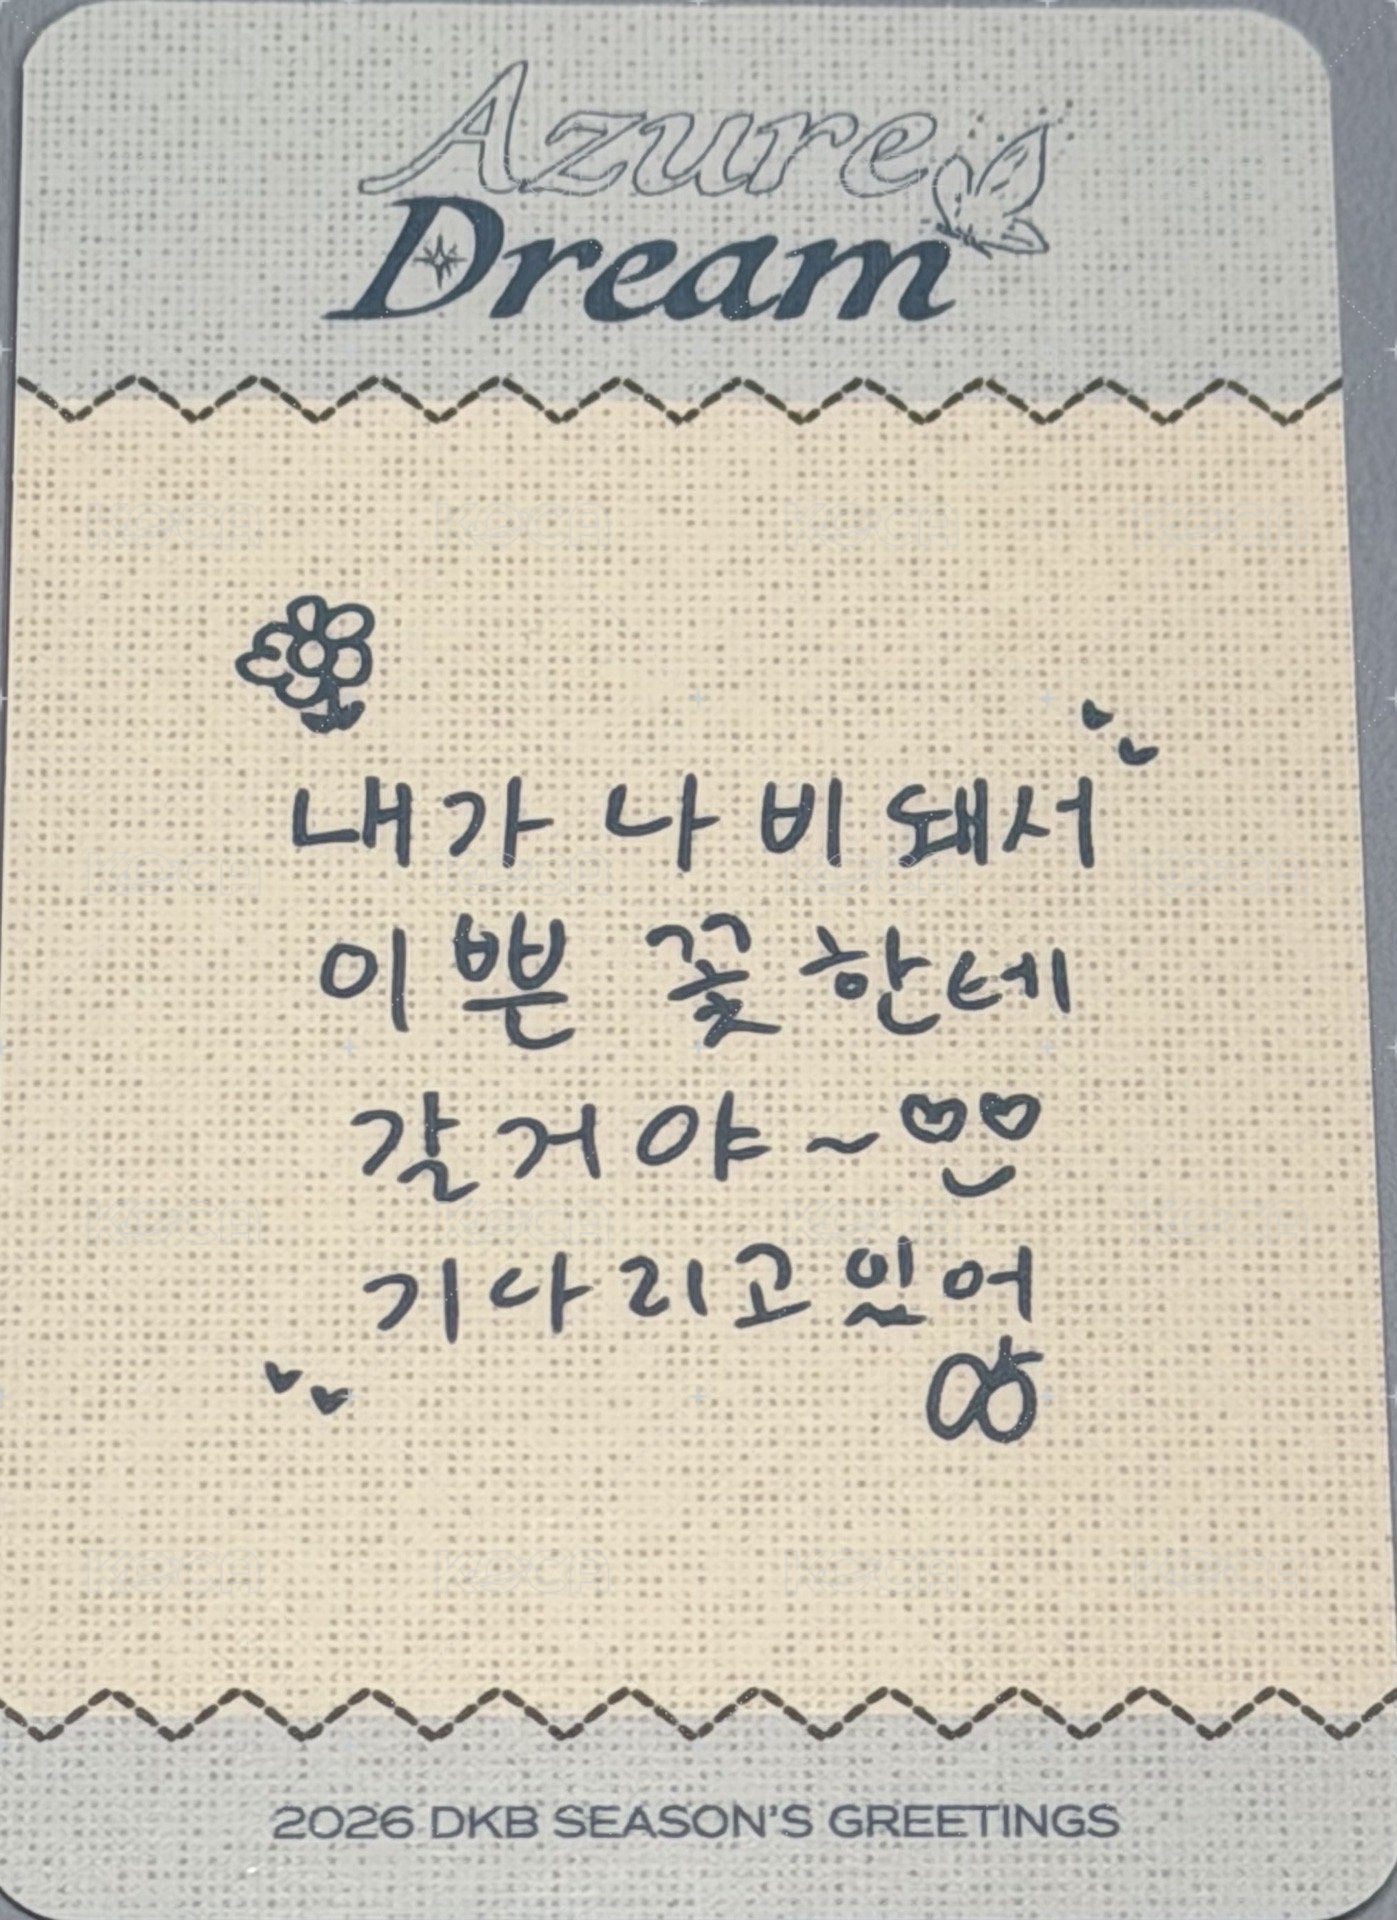 Azure
Dream
내가 나비 돼서
이쁜 꽃한테
갈거야~
기다리고있어
2026 DKB SEASON'S GREETINGS